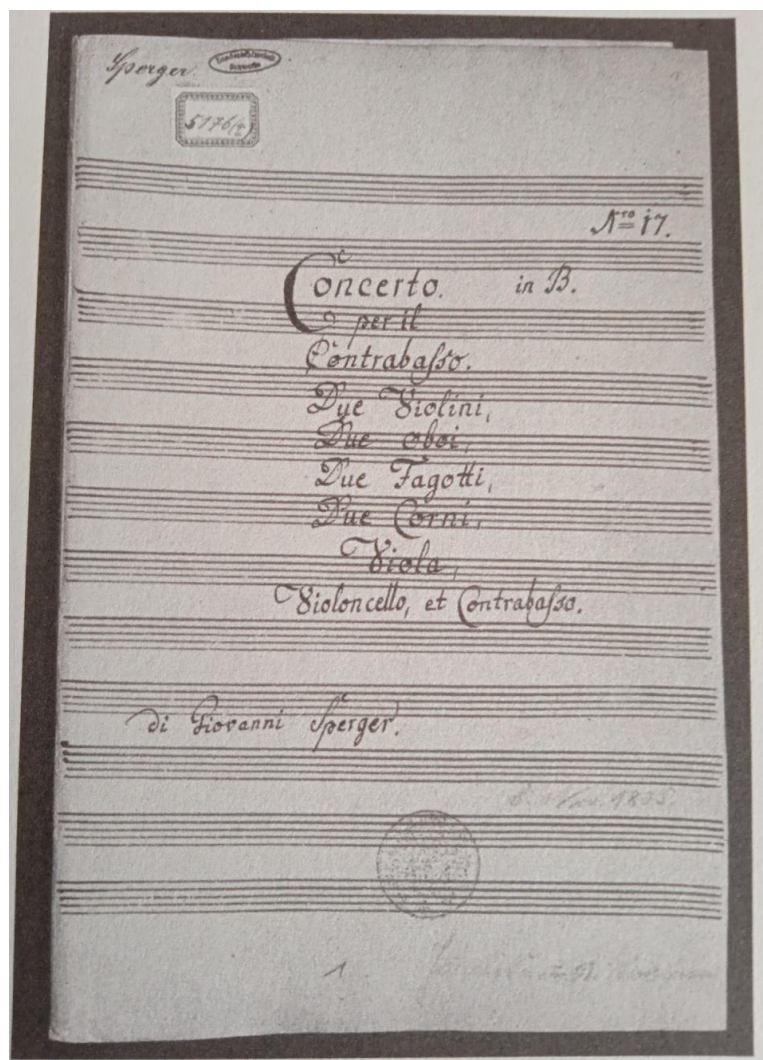 Sperger.
5176(2)
Nro 17.
Concerto. in B.
per il
Contrabasso.
Due Violini,
Due Oboi,
Due Fagotti,
Due Corni,
Viola,
Violoncello, et Contrabasso.
di Giovanni Sperger.
1